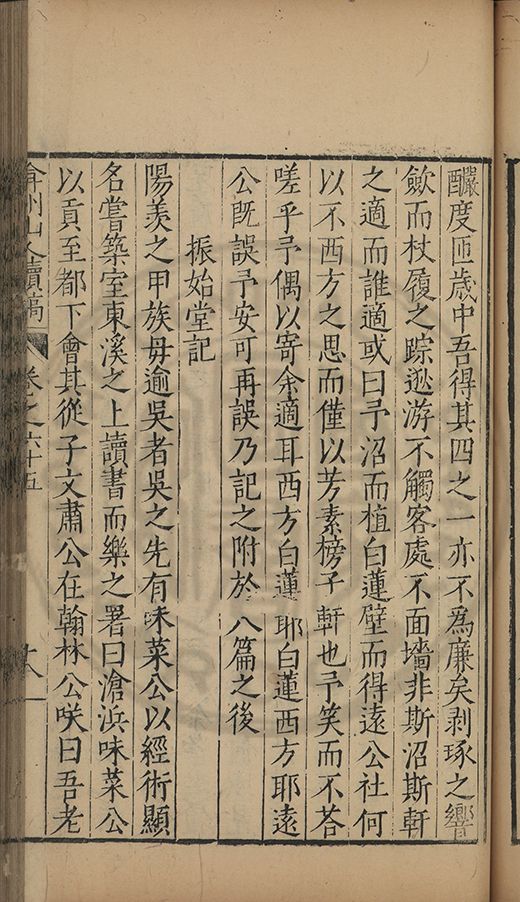 釀度匝歲中吾得其四之一亦不為廉矣剥琢之響
歛而杖履之踪逖游不觸客處不面墻非斯沼斯軒
之適而誰適或曰予沼而植白蓮壁而得遠公社何
以不西方之思而僅以芳素榜予軒也予笑而不荅
嗟乎予偶以寄余適耳西方白蓮耶白蓮西方耶遠
公既誤予安可再誤乃記之附於八篇之後
振始堂記
陽羨之甲族毋逾吳者吳之先有味菜公以經術顯
名嘗築室東溪之上讀書而樂之署曰滄浜味菜公
以貢至都下會其從子文肅公在翰林公咲曰吾老
弇州山人續稿 卷之六十五 十八